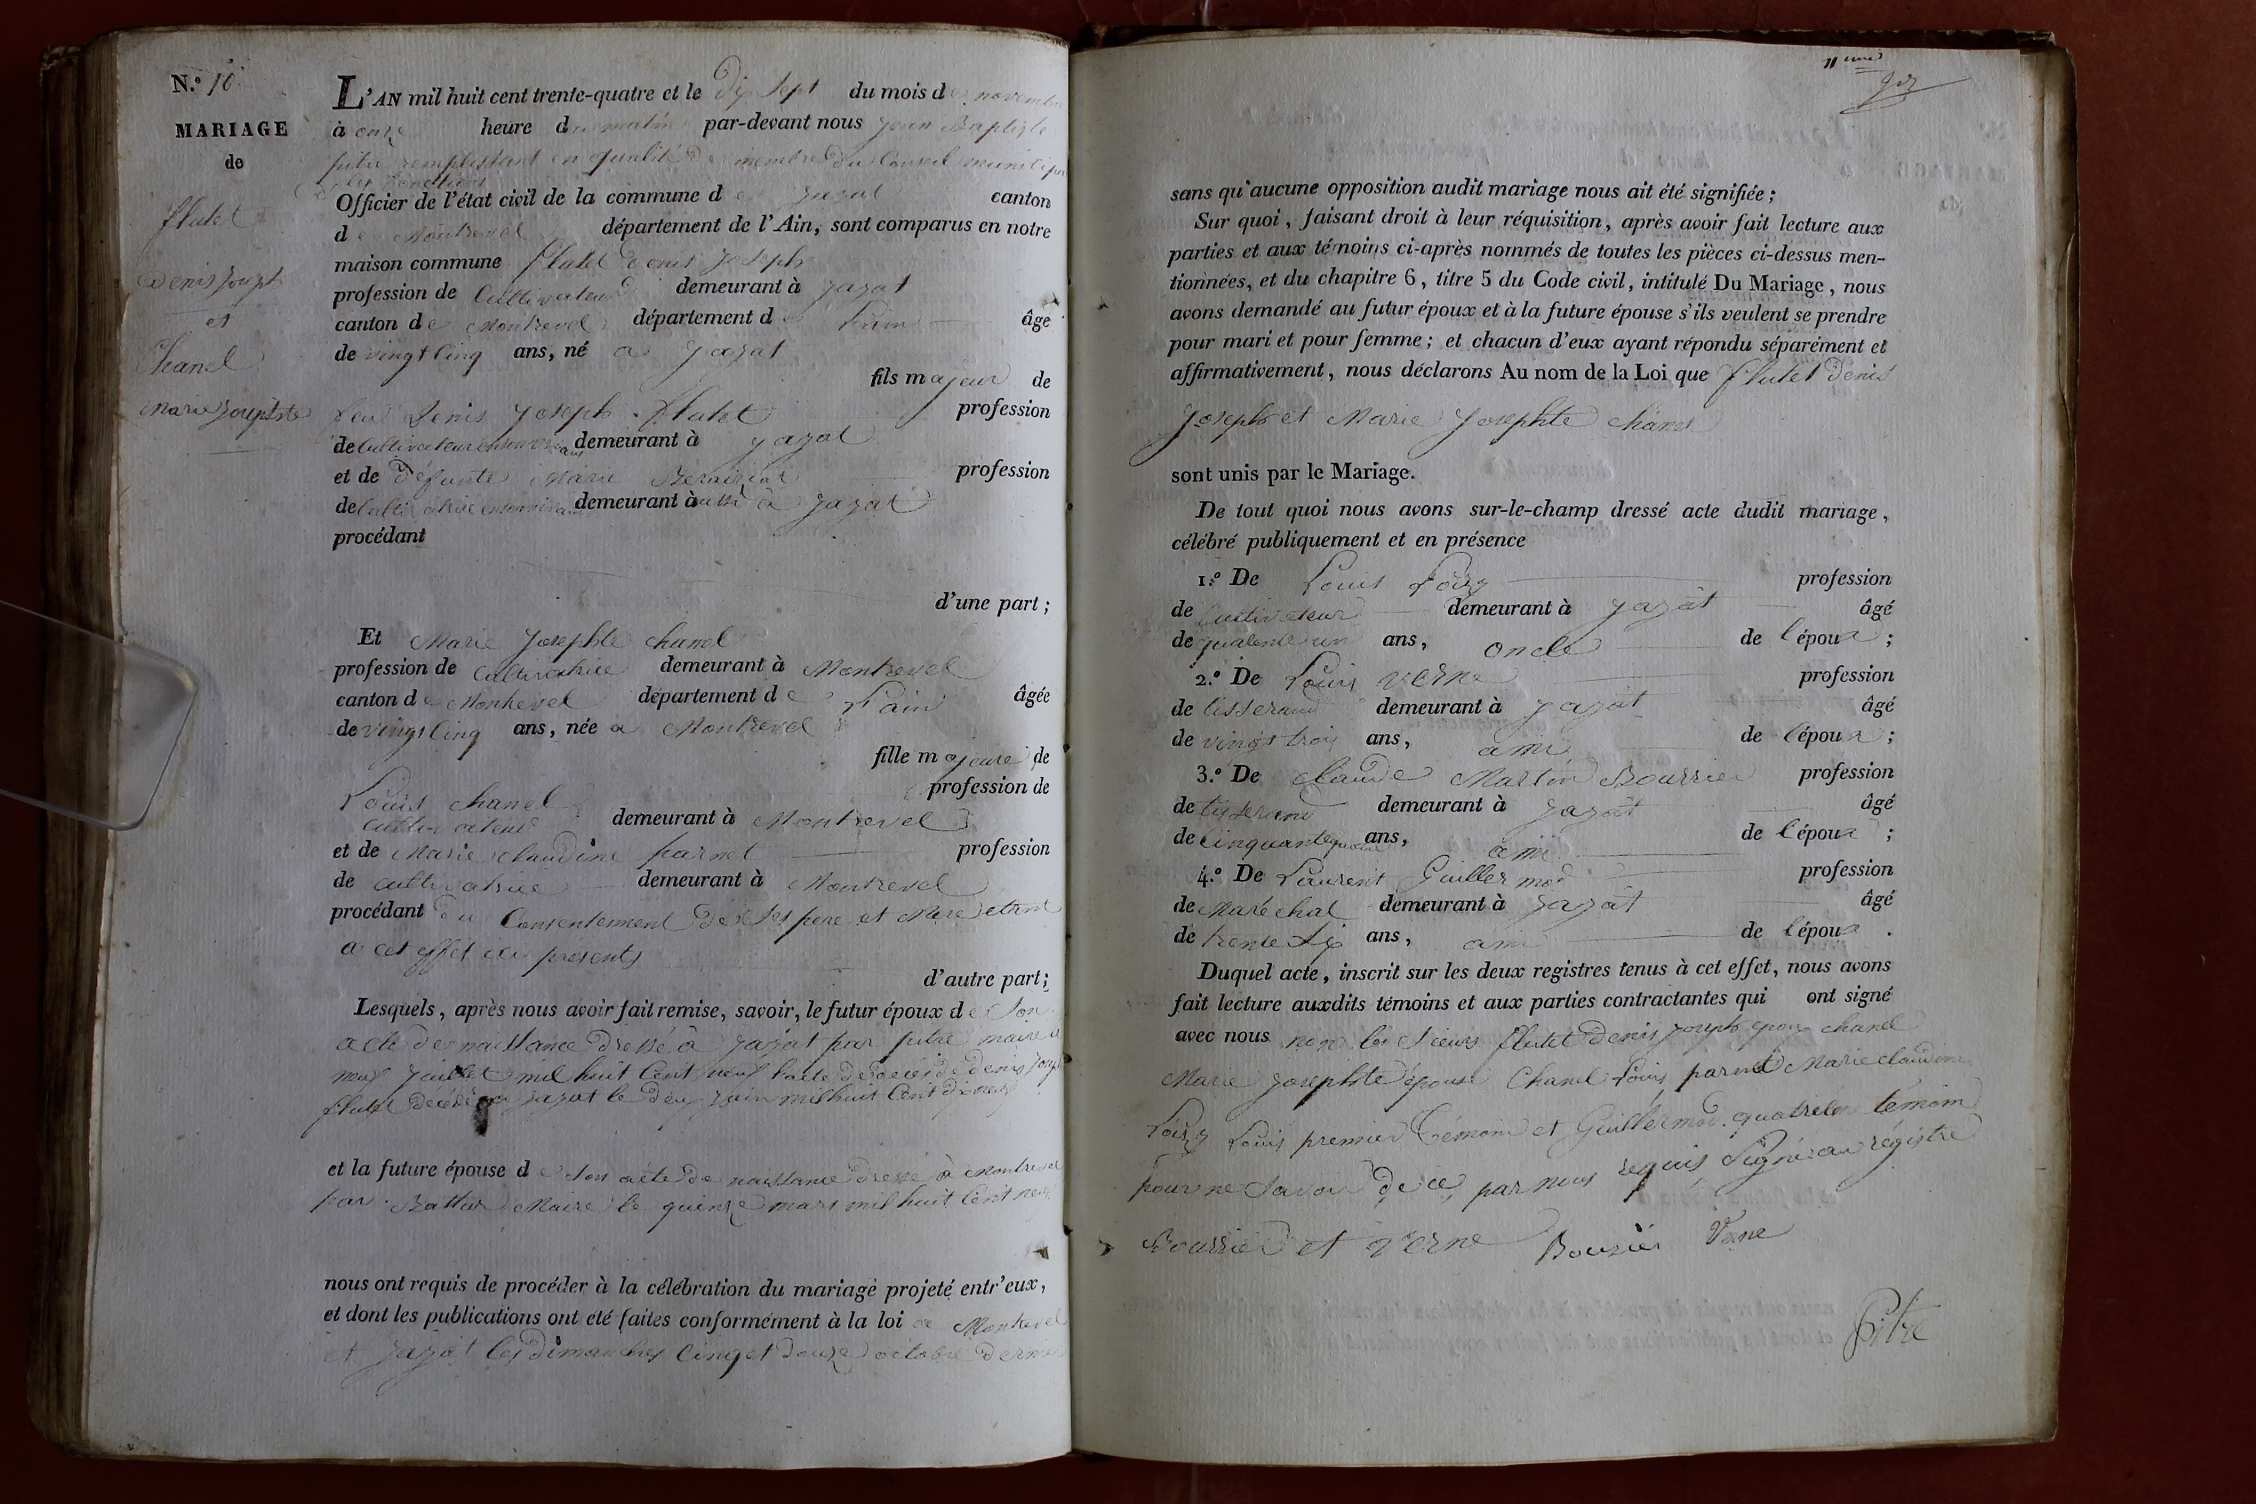 N.o 10.
MARIAGE
de
flutet
Denis Joseph
et
Chanel
Marie Josephte
L'AN mil huit cent trente-quatre et le Dix Sept du mois de novembre
à onze heure du matin par-devant nous Jean Baptiste
pitre remplissant en qualité de membre du Conseil municipal
les fonctions
Officier de l'état civil de la commune de Jayat canton
de Montrevel département de l'Ain, sont comparus en notre
maison commune flutet Denis Joseph
profession de Cultivateur demeurant à jayat
canton de Montrevel département de L'ain âgé
de vingt Cinq ans, né a Jayat
fils majeur de
feu Denis Joseph flutet profession
de Cultivateur en son vivant demeurant à jayat
et de défunte Marie profession
de Cultivatrice en son vivant demeurant à aussi à Jayat
procédant
d'une part ;
Et Marie Josephte Chanel
profession de Cultivatrice demeurant à Montrevel
canton de Montrevel département de L'ain âgée
de vingt Cinq ans, née a Montrevel
fille majeure de
Louis Chanel profession de
Cultivateur demeurant à Montrevel
et de Marie Claudine parnet profession
de cultivatrice demeurant à Montrevel
procédant du Consentement de Ses pere et Mere etant
a cet effet ici présents
d'autre part ;
Lesquels, après nous avoir fait remise, savoir, le futur époux de Son
acte de naissance dressé à Jayat par pitre maire le
neuf juillet mil huit Cent neuf l'acte de décès de Denis Joseph
flutet décédé a Jayat le deux Juin mil huit Cent dix neuf
et la future épouse de Son acte de naissance dressé à Montrevel
par Maire le quinze mars mil huit Cent neuf
nous ont requis de procéder à la célébration du mariage projeté entr'eux,
et dont les publications ont été faites conformément à la loi a Montrevel
et Jayat les dimanches Cinq et Douze octobre dernier
11
sans qu'aucune opposition audit mariage nous ait été signifiée ;
Sur quoi, faisant droit à leur réquisition, après avoir fait lecture aux
parties et aux témoins ci-après nommés de toutes les pièces ci-dessus men-
tionnées, et du chapitre 6, titre 5 du Code civil, intitulé Du Mariage, nous
avons demandé au futur époux et à la future épouse s'ils veulent se prendre
pour mari et pour femme ; et chacun d'eux ayant répondu séparément et
affirmativement, nous déclarons Au nom de la Loi que flutet Denis
Joseph et Marie Josephte Chanel
sont unis par le Mariage.
De tout quoi nous avons sur-le-champ dressé acte dudit mariage,
célébré publiquement et en présence
1.o De Louis Loisy profession
de Cultivateur demeurant à Jayat âgé
de quarante un ans, oncle de l'époux ;
2.o De Louis Verne profession
de tisserand demeurant à Jayat âgé
de vingt trois ans, ami de l'époux ;
3.o De Claude Martin Bourrier profession
de tisserand demeurant à Jayat âgé
de Cinquante quatre ans, ami de l'époux ;
4.o De Laurent Guillermod profession
de Maréchal demeurant à Jayat âgé
de trente Six ans, ami de l'époux .
Duquel acte, inscrit sur les deux registres tenus à cet effet, nous avons
fait lecture auxdits témoins et aux parties contractantes qui ont signé
avec nous non les Sieurs flutet Denis Joseph époux Chanel
Marie Josephte épouse Chanel Louis parnet Marie Claudine
Loisy Louis premier Témoin et Guillermod quatrième temoin
pour ne Savoir de ce par nous requis Signé au régistre
Bourrier et Verne Bourier Verne
Pitre